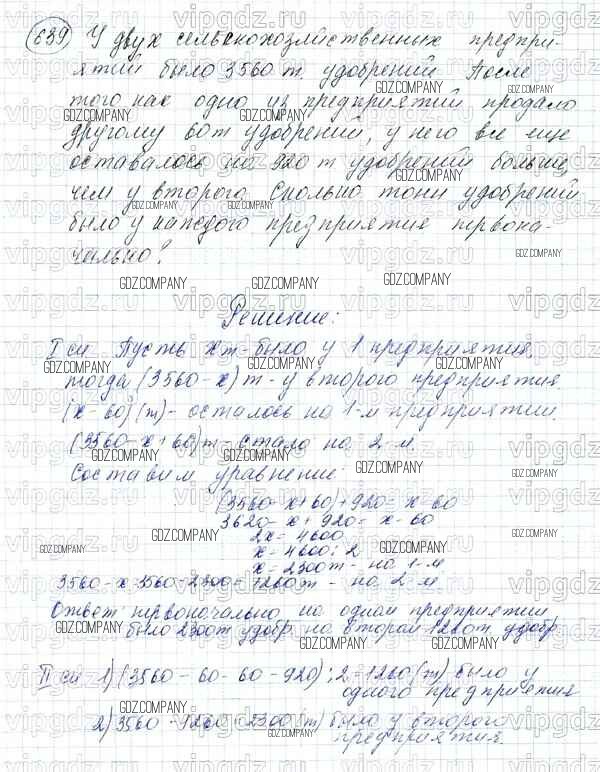 639 У двух сельскохозяйственных предпри-
ятий было 3560 т удобрений. После
того как одно из предприятий продало
другому 60 т удобрений, у него все еще
оставалось на 920 т удобрений больше,
чем у второго. Сколько тонн удобрений
было у каждого предприятия первона-
чально?
Решение:
I сп Пусть x т - было у 1 предприятия,
тогда (3560-x) т - у второго предприятия.
(x-60) (т) - осталось на 1-м предприятии.
(3560-x+60) т - стало на 2-м.
Составим уравнение:
(3560-x+60)+920=x-60
3620-x+920=x-60
2x=4600
x=4600:2
x=2300т - на 1-м
3560-x=3560-2300=1260т - на 2-м
Ответ первоначально на одном предприятии
было 2300т удобр. на втором 1260т удобр
II сп 1) (3560-60-60-920):2=1260(т) было у
одного предприятия
2) 3560-1260=2300(т) было у второго
предприятия.